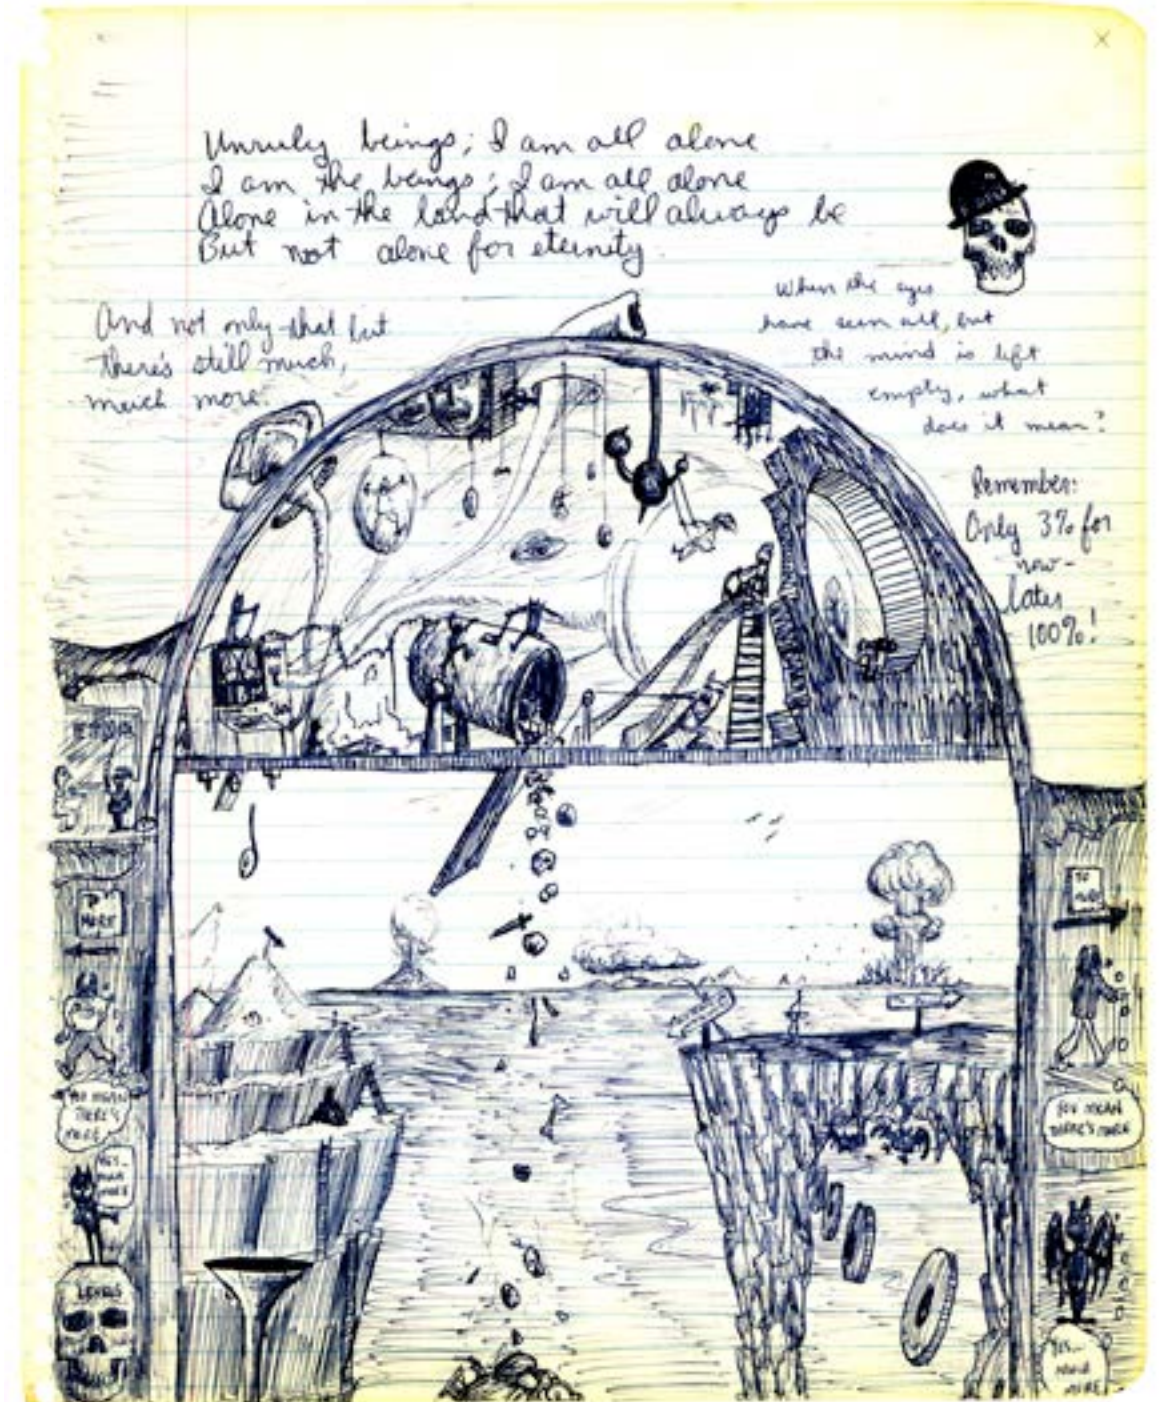 Unruly beings; I am all alone
I am the beings; I am all alone
Alone in the land that will always be
But not alone for eternity.
And not only that but
there's still much,
much more.
When the eyes
have seen all, but
the mind is left
empty, what
does it mean?
Remember:
Only 3% for
now-
later
100%!
MORE
TO
MORE
YOU MEAN
THERE'S
MORE
YES...
MUCH
MORE
LEVELS
YOU MEAN
THERE'S MORE
YES...
MUCH
MORE